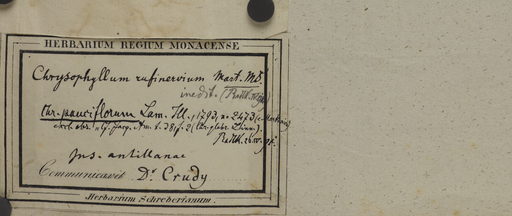 HERBARIUM REGIUM MONACENSE
Chrysophyllum rufinervium Mart. Ms.
inedit. (Radlk.
Chr. pauciflorum Lam. Ill., 1793, n. 2473
excl. Jacq. Am. t. 38, f. 2
Radlk.
Ins. antillanae
Communicavit Dr Crudy
Herbarium Schreberianum.